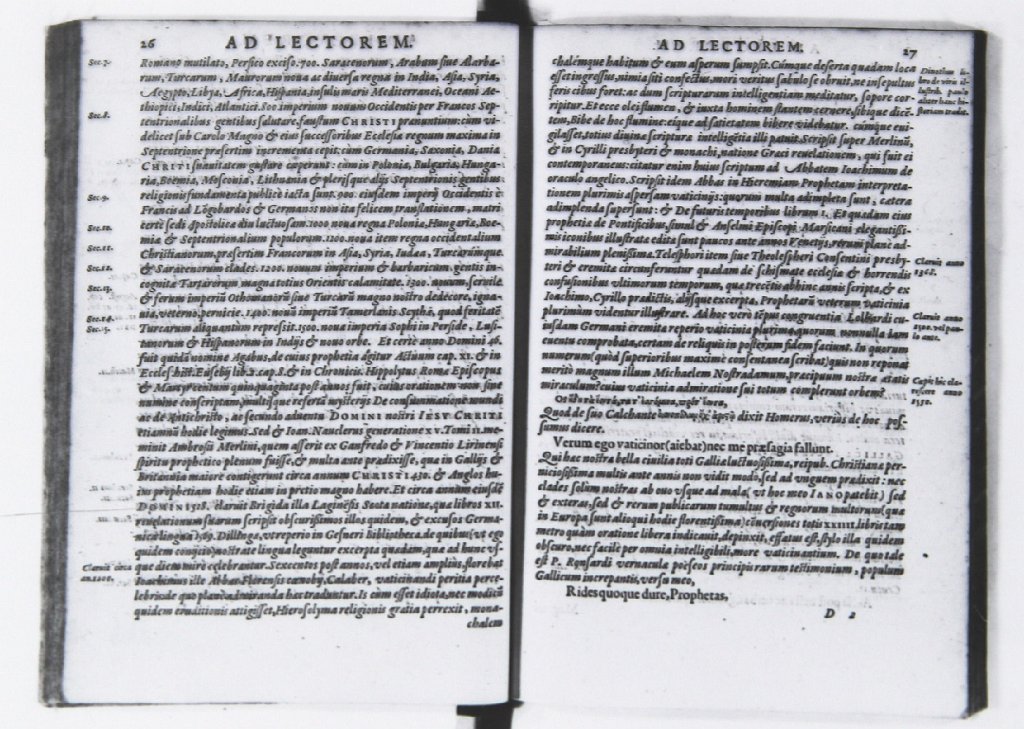 26
AD LECTOREM.
Sec.7.
Romano mutilato, Persico exciso. 700. Saracenorum, Arabum siue Alarba-
rum, Turcarum, Maurorum noua ac diuersa regna in India, Asia, Syria,
Aegypto, Libya, Africa, Hispania, insulis maris Mediterranei, Oceani Ae-
thiopici, Indici, Atlantici. 800 imperium nouum Occidentis per Francos Sep-
Sec.8.
tentrionalibus gentibus salutare, faustum CHRISTI prænuntium: cùm vi-
delicet sub Carolo Magno & eius successoribus Ecclesia regnum maxima in
Septentrione præsertim incrementa cepit: cùm Germania, Saxonia, Dania
CHRISTI suauitatem gustare cœperunt: cùm in Polonia, Bulgaria, Hunga-
ria, Boëmia, Moscouia, Lithuania & plerisque alijs Septentrionis gentibus
religionis fundamenta publicè iacta sunt. 900. eiusdem imperij Occidentis è
Sec.9.
Francis ad Lōgobardos & Germanos non ita felicem translationem, matri
certè sedi Apostolicæ diu luctuosam. 1000. noua regna Polonia, Hungaria, Boë-
Sec.10.
mia & Septentrionalium populorum. 1100. noua item regna occidentalium
Sec.11.
Christianorum, præsertim Francorum in Asia, Syria, Iudæa, Turcarumque
Sec.12.
& Saracenorum clades. 1200. nouum imperium & barbaricum, gentis in-
cognitæ Tartarorum magna totius Orientis calamitate. 1300. nouum, seruile
Sec.13.
& ferum imperiū Othomanorū siue Turcarū magno nostro dedecore, igna-
uia, veterno, pernicie. 1400. nouū imperiū Tamerlanis Scythæ, quod feritatē
Sec.14.
Turcarum aliquantùm repressit. 1500. noua imperia Sophi in Perside, Lusi-
Sec.15.
tanorum & Hispanorum in Indijs & nouo orbe. Et certè anno Domini 46.
fuit quidā nomine Agabus, de cuius prophetia agitur Actuum cap. XI. & in
Eccles. hist. Eusebij lib. 2. cap. 8. & in Chronicis. Hippolytus Romæ Episcopus
& Martyr centum quinquaginta post annos fuit, cuius orationem non sine
numine conscriptam, multisque referta mysterijs De consummatione mundi
ac de Antichristo, ac secundo aduentu DOMINI nostri IESV CHRISTI
etiamnū hodie legimus. Sed & Ioan. Nauclerus generatione XV. Tomi II. me-
minit Ambrosij Merlini, quem asserit ex Ganfredo & Vincentio Lirinensi
spiritu prophetico plenum fuisse, & multa ante prædixisse, quæ in Gallijs &
Britannia maiore contigerunt circa annum CHRISTI 430. & Anglos hu-
ius prophetiam hodie etiam in pretio magno habere. Et circa annum eiusdē
DOMINI 518. claruit Brigida illa Laginēsis Scota natione, quæ libros XII.
reuelationum suarum scripsit obscurissimos illos quidem, & excusos Germa-
nica lingua 1569. Dillingæ, vt reperio in Gesneri Bibliotheca, de quibus (vt ego
quidem conijcio) nostrate lingua leguntur excerpta quædam, quæ ad hunc vs-
que diem mirè celebrantur. Sexcentos post annos, vel etiam ampliùs, florebat
Claruit circa
an.1200.
Ioachimus ille Abbas Florensis cœnoby, Calaber, vaticinandi peritia perce-
lebris: de quo planè admiranda hæc traduntur. Is cùm esset idiota, nec modicū
quidem eruditionis attigisset, Hierosolyma religionis gratia perrexit, mona-
chalem
AD LECTOREM.
27
chalémque habitum & eum asperum sumpsit. Cúmque deserta quædam loca
esset ingressus, nimia siti confectus, mori veritus sabulo se obruit, ne insepultus
feris cibus foret: ac dum scripturarum intelligentiam meditatur, sopore cor-
ripitur. Et ecce olei flumen, & iuxta hominem stantem cernere, sibique dicē-
tem, Bibe de hoc flumine: eique ad satietatem bibere videbatur. cùmque eui-
gilasset, totius diuinæ scripturæ intelligētia illi patuit. Scripsit super Merlinū,
& in Cyrilli presbyteri & monachi, natione Græci reuelationem, qui fuit ei
contemporaneus: citatur enim huius scriptum ad Abbatem Ioachimum de
oraculo angelico. Scripsit idem Abbas in Hieremiam Prophetam interpreta-
tionem plurimis aspersam vaticinijs: quorum multa adimpleta sunt, cætera
adimplenda supersunt: & De futuris temporibus librum 1. Et quædam eius
prophetia de Pontificibus, simul & Anselmi Episcopi Marsicani elegantissi-
mis iconibus illustrata edita sunt paucos ante annos Venetijs, rerum planè ad-
mirabilium plenissima. Telesphori item siue Theolesphori Consentini presby-
teri & eremitæ circunferuntur quædam de schismate ecclesiæ & horrendis
Claruit anno
1368.
confusionibus vltimorum temporum, quæ trecētis abhinc annis scripta, & ex
Ioachimo, Cyrillo prædictis, alijsque excerpta, Prophetarū veterum vaticinia
plurimùm videntur illustrare. Ad hoc verò tēpus congruentia Lolhardi cu-
iusdam Germani eremitæ reperio vaticinia plurima, quorum nonnulla iam
euentu comprobata, certam de reliquis in posterum fidem faciunt. In quorum
numerum (quòd superioribus maximè consentanea scribat) quis non reponat
meritò magnum illum Michaelem Nostradamum, præcipuum nostræ ætatis
miraculum? cuius vaticinia admiratione sui totum complerunt orbem.
Quod de suo Calchante dixit Homerus, veriùs de hoc pos-
sumus dicere.
Verum ego vaticinor (aiebat) nec me præsagia fallunt.
Qui hæc nostra bella ciuilia toti Galliæ luctuosissima, reipub. Christianæ per-
niciosissima multis ante annis non vidit modò, sed ad vnguem prædixit: nec
clades solùm nostras ab ouo vsque ad mala (vt hoc meo IANO patebit) sed
& exteras, sed & rerum publicarum tumultus & regnorum multorum (quæ
in Europa sunt alioqui hodie florentissima) cōuersiones totis XXIIII. libris tam
metro quàm oratione libera indicauit, depinxit, effatus est, stylo illa quidem
obscuro, nec facilè per omnia intelligibili, more vaticinantium. De quo tale
est P. Ronsardi vernaculæ poëseos principis rarum testimonium, populum
Gallicum increpantis, versu meo,
Rides quoque dure, Prophetas,
D 2
Claruit anno